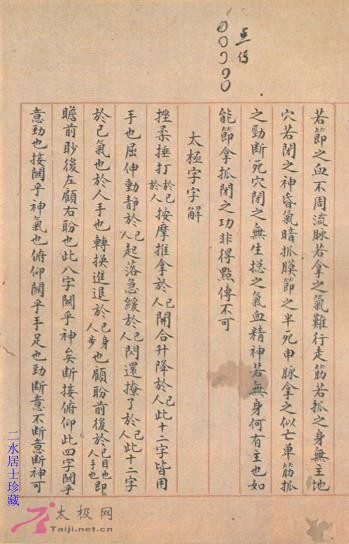 点传
若節之血不周流脉若拿之氣難行走筋若抓之身無主地
穴若閉之神昏氣暗抓膜節之半死申脉拿之似亡单筋抓
之勁斷死穴閉之無生揔之氣血精神若無身何有主也如
能節拿抓閉之功非得點傳不可
太極字字解
挫柔捶打於己於人按摩推拿於己於人開合升降於己於人此十二字皆用
手也屈伸動靜於己於人起落急緩於己於人閃還撩了於己於人此十二字
於己氣也於人手也轉換進退於己身也於人步也顧盼前後於己目也於人手也即
瞻前眇後左顧右盼也此八字關乎神矣斷接俯仰此四字關乎
意勁也接關乎神氣也俯仰關乎手足也勁斷意不斷意斷神可
二水居士珍藏
太极网
Taiji.net.cn